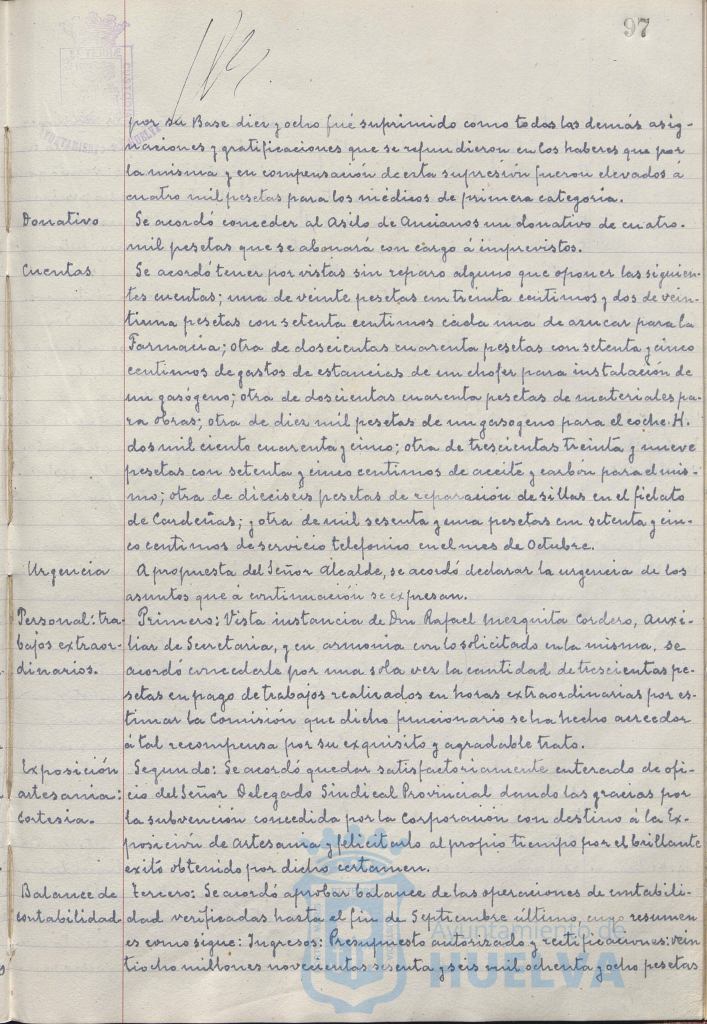 97
por su Base diez y ocho fué suprimido como todas las demás asig-
naciones y gratificaciones que se refundieron en los haberes que por
la misma y en compensación de esta supresión fueron elevados á
cuatro mil pesetas para los médicos de primera categoría.
Donativo Se acordó conceder al Asilo de Ancianos un donativo de cuatro
mil pesetas que se abonará con cargo á imprevistos.
Cuentas Se acordó tener por vistas sin reparo alguno que oponer las siguien-
tes cuentas; una de veinte pesetas con treinta centimos y dos de vein-
tiuna pesetas con setenta centimos cada una de azucar para la
Farmacia; otra de doscientas cuarenta pesetas con setenta y cinco
centimos de gastos de estancias de un chofer para instalación de
un gasógeno; otra de doscientas cuarenta pesetas de materiales pa-
ra obras; otra de diez mil pesetas de un gasogeno para el coche H.
dos mil ciento cuarenta y cinco; otra de trescientas treinta y nueve
pesetas con setenta y cinco centimos de aceite y carbon para el mis-
mo; otra de dieciséis pesetas de reparación de sillas en el fielato
de Cardeñas; y otra de mil sesenta y una pesetas con setenta y cin-
co centimos de servicio telefonico en el mes de Octubre.
Urgencia A propuesta del Señor Alcalde, se acordó declarar la urgencia de los
asuntos que á continuación se expresan.
Personal: tra- Primero: Vista instancia de Don Rafael Mezquita Cordero, Auxi-
bajos extraor- liar de Secretaria, y en armonia con lo solicitado en la misma, se
dinarios. acordó concederle por una sola vez la cantidad de trescientas pe-
setas en pago de trabajos realizados en horas extraordinarias por es-
timar la Comisión que dicho funcionario se ha hecho acreedor
á tal recompensa por su exquisito y agradable trato.
Exposición Segundo: Se acordó quedar satisfactoriamente enterado de ofi-
artesania: cio del Señor Delegado Sindical Provincial dando las gracias por
cortesia. la subvención concedida por la Corporación con destino á la Ex-
posición de Artesania y felicitado al propio tiempo por el brillante
exito obtenido por dicho certamen.
Balance de Tercero: Se acordó aprobar balance de las operaciones de contabili-
contabilidad dad verificadas hasta el fin de Septiembre último, cuyo resumen
es como sigue: Ingresos: Presupuesto autorizado y rectificaciones: vein-
tiocho millones novecientas sesenta y seis mil ochenta y ocho pesetas
Ayuntamiento de
HUELVA